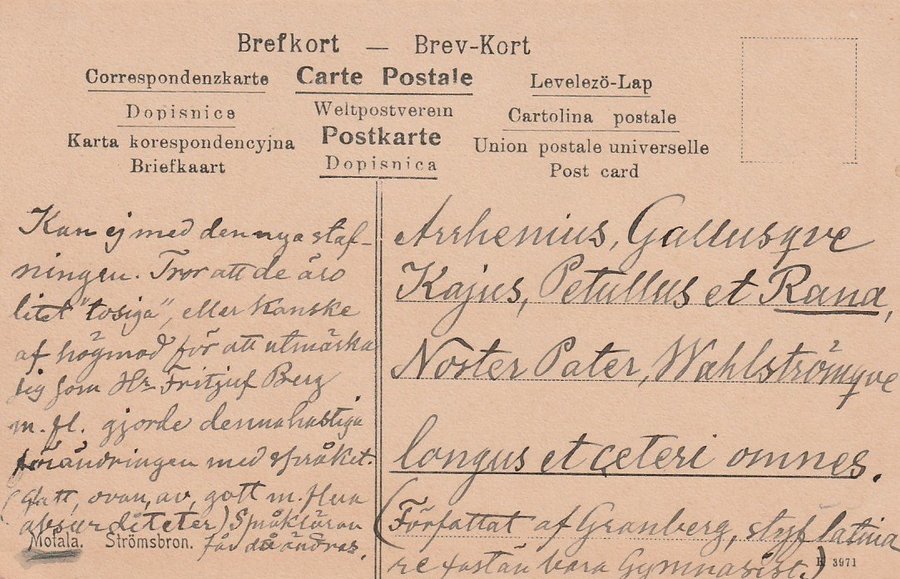 Brefkort — Brev-Kort
Correspondenzkarte
Carte Postale
Levelezö-Lap
Dopisnice
Weltpostverein
Cartolina postale
Karta korespondencyjna
Postkarte
Union postale universelle
Briefkaart
Dopisnica
Post card
Kan ej med den nya staf-
ningen. Tror att de äro
litet "tosiga", eller kanske
af högmod för att utmärka
sig som Hr. Fritjuf Berg
m. fl. gjorde denna hastiga
förändringen med språket.
(Glatt, ovan, av, gott m. flera
absurditeter) Språkläran
får då ändras.
Motala. Strömsbron.
Arrhenius, Gallusqve
Kajus, Petullus et Rana,
Noster Pater, Wahlströmqve
longus et ceteri omnes.
(Författat af Granberg, styf latina
re fastän bara Gymnasist.)
K 3971